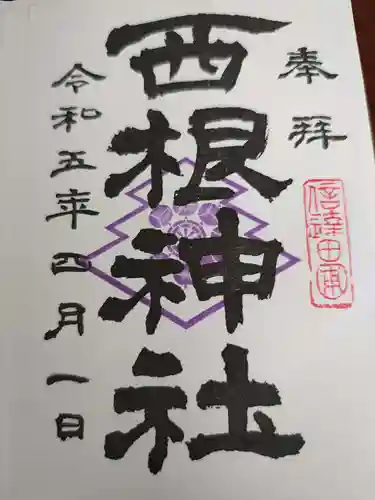 奉拝
信達田甫
西根神社
令和五年四月一日